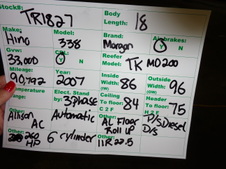 Stock#: TR1827 Body Length: 18
Make: Hino Model: 338 Brand: Morgan Airbrakes: Y N
Gvw: 33,000 Y N Reefer Model: TK MD200
Mileage: 90,792 Year: 2007 Inside Width: 86 Outside Width: 96
Temperature Range: Elect. Stand by: 3phase Ceiling To floor: 84 Header To floor: 75
Allison Automatic AL Floor D/S Diesel
AC Roll up D/S
Other: 260 HP 6 cylinder Other: 11R 22.5